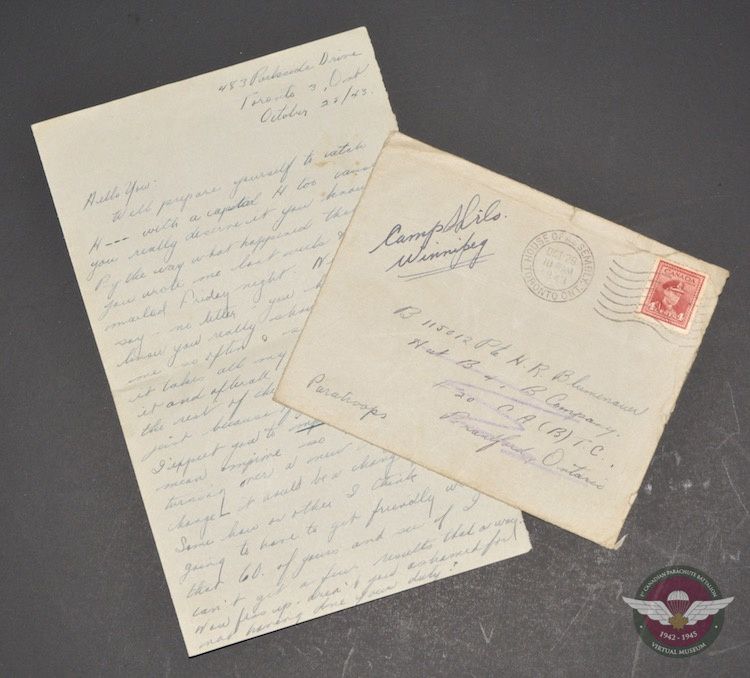 483 Parkside Drive
Toronto 3, Ont
October 23/43.
Hello You:
Well prepare yourself to catch
H--- with a capital H too cause
you really deserve it you know
By the way what happened that
you wrote me last week &
mailed Friday night.
say no letter you
know you really
me so often &
it takes all my
it and afterall
the rest of the
just because
I expect you to
mean improve so
turning over a new
change! it would be a change
Some how or other I think
going to have to get friendly
that CO. of yours and see if I
can't get a few results that a way.
Now fess up aren't you ashamed for
not having done your duty?
Camp Shilo.
Winnipeg
HOUSE OF ASSEMBLY
OCT 25
10 PM
TORONTO ONT.
CANADA
4 4
B 115012 Pte H.R Blumenauer
Hut B-4, B Company.
#20 C.A (B) T.C.
Brantford, Ontario
Paratroops
1ST CANADIAN PARACHUTE BATTALION
1942 - 1945
VIRTUAL MUSEUM